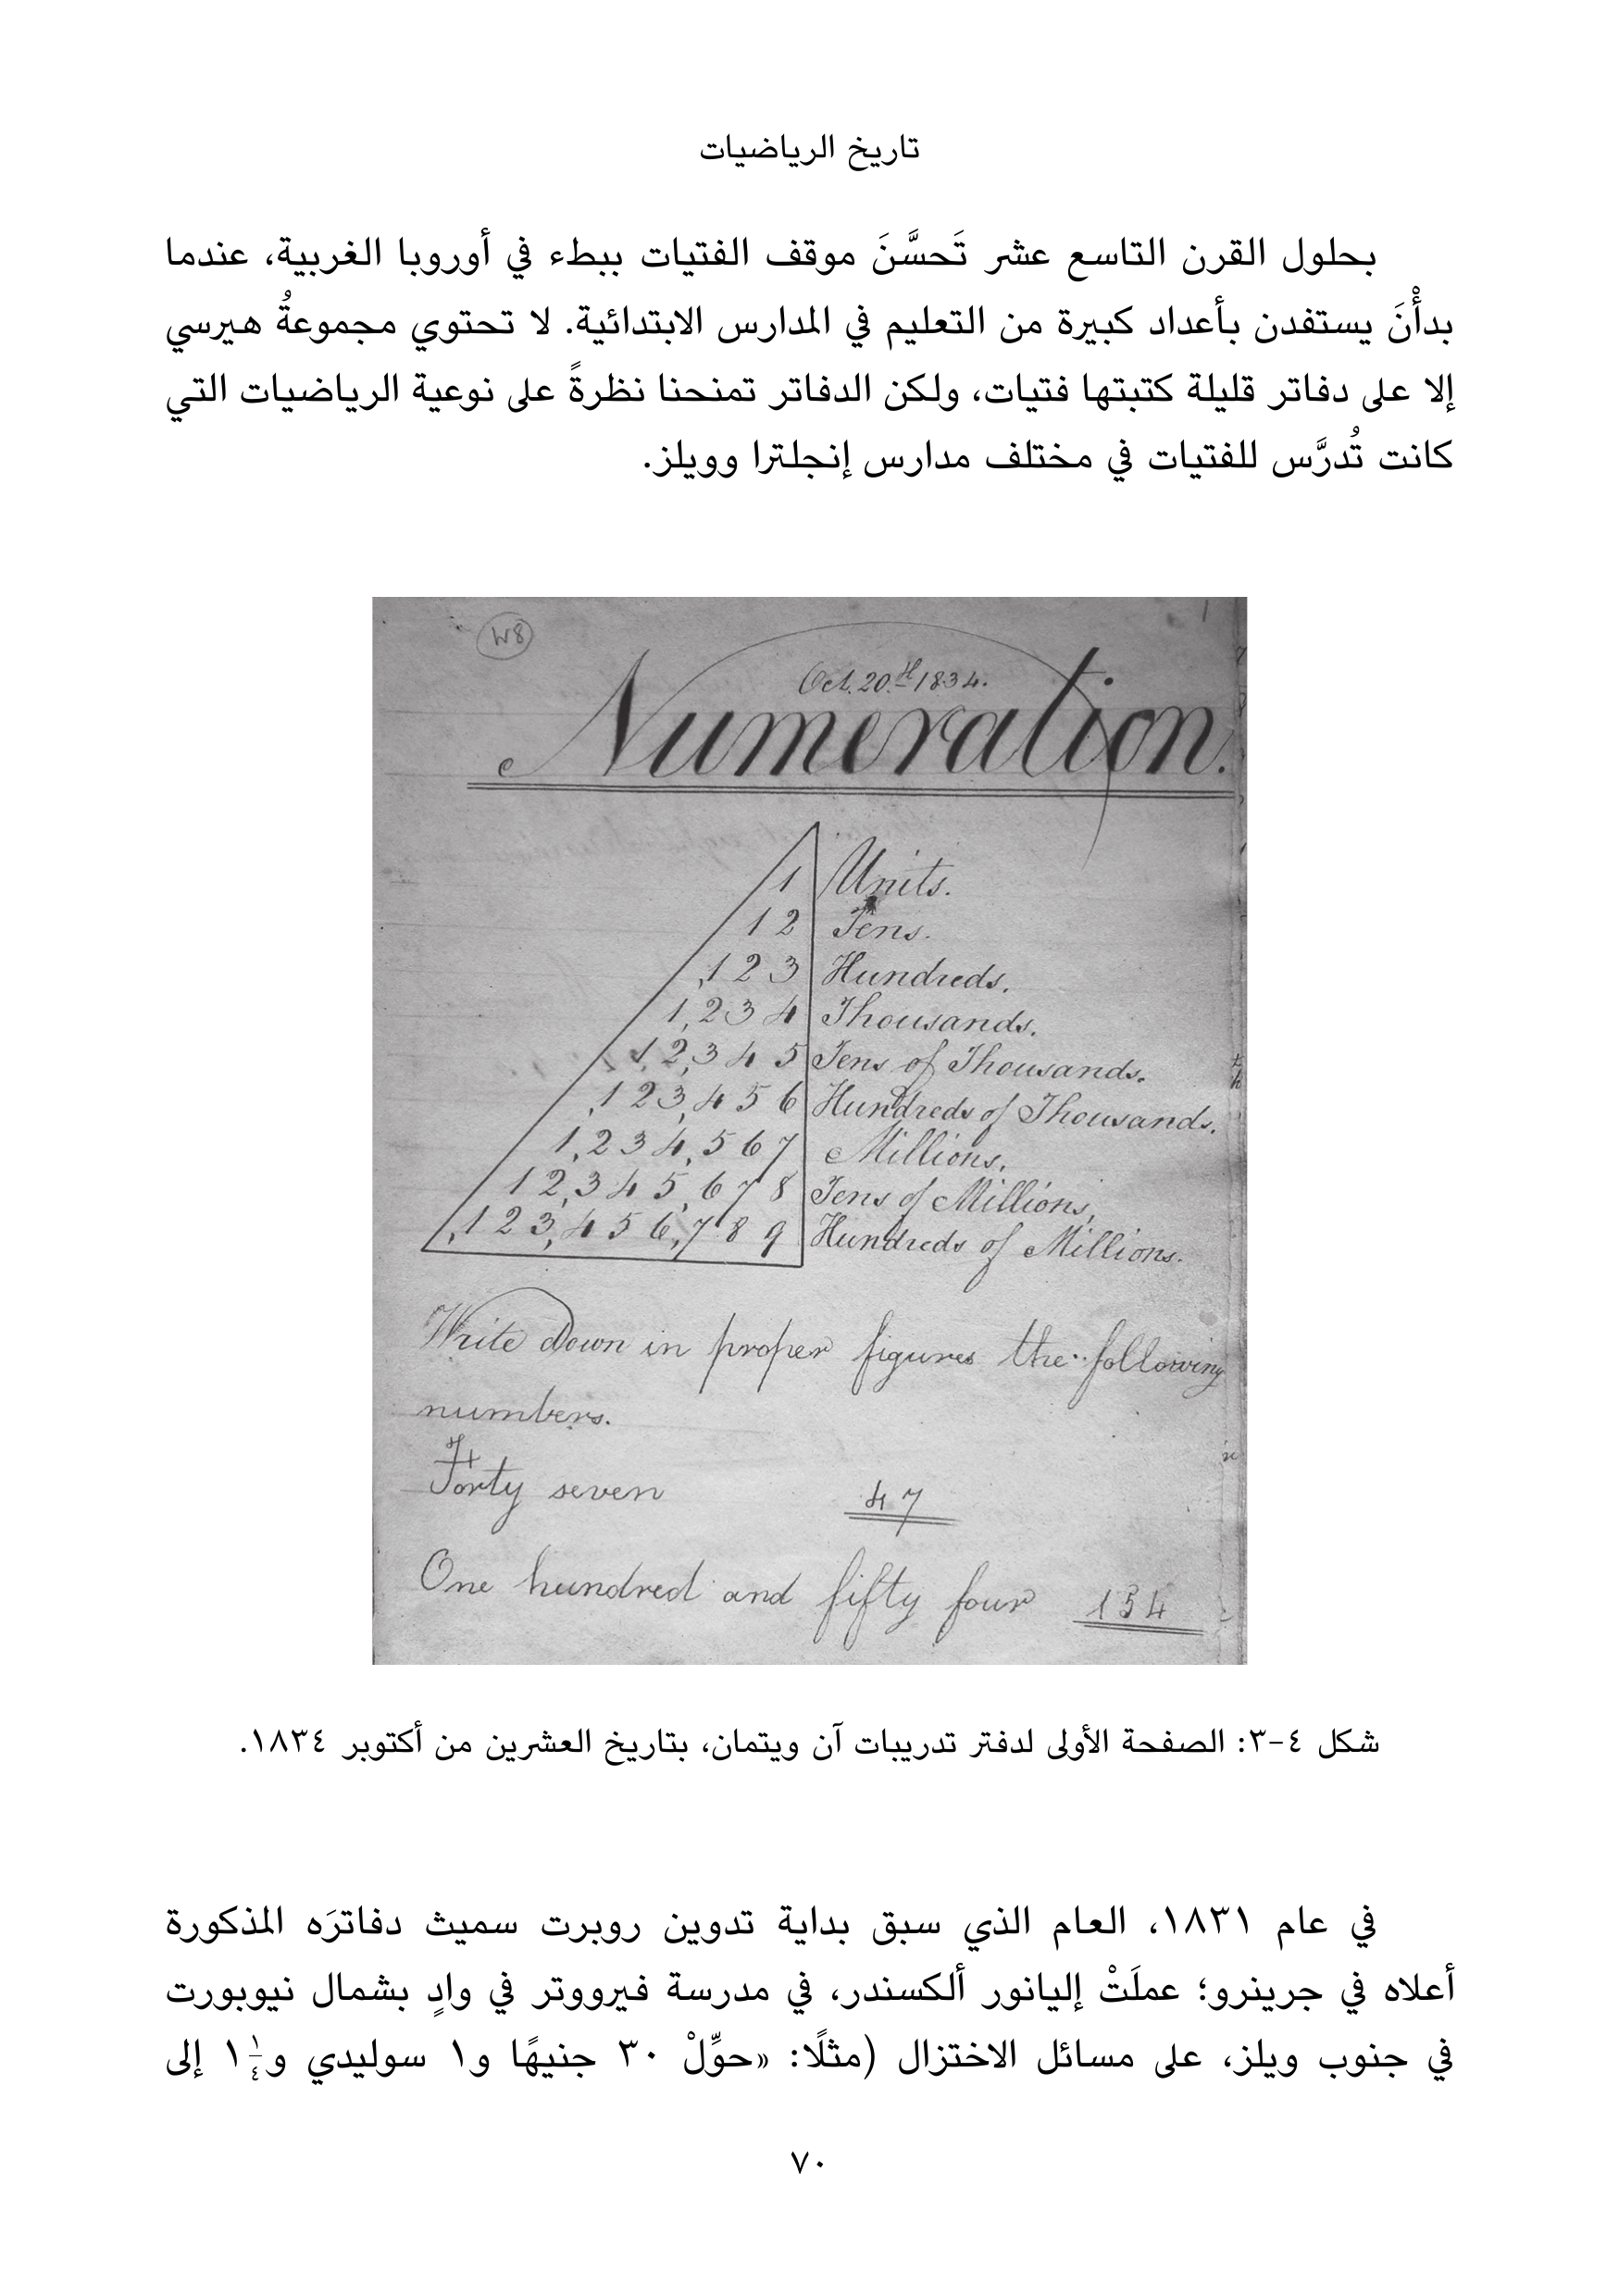 تاريخ الرياضيات
بحلول القرن التاسع عشر تَحسَّنَ موقف الفتيات ببطء في أوروبا الغربية، عندما
بدأْنَ يستفدن بأعداد كبيرة من التعليم في المدارس الابتدائية. لا تحتوي مجموعةُ هيرسي
إلا على دفاتر قليلة كتبتها فتيات، ولكن الدفاتر تمنحنا نظرةً على نوعية الرياضيات التي
كانت تُدرَّس للفتيات في مختلف مدارس إنجلترا وويلز.
W8
Oct. 20.th 1834.
Numeration.
1 Units.
1 2 Tens.
,1 2 3 Hundreds.
1,2 3 4 Thousands.
1 2,3 4 5 Tens of Thousands.
,1 2 3,4 5 6 Hundreds of Thousands.
1,2 3 4,5 6 7 Millions.
1 2,3 4 5,6 7 8 Tens of Millions,
,1 2 3,4 5 6,7 8 9 Hundreds of Millions.
Write down in proper figures the following
numbers.
Forty seven 47
One hundred and fifty four 154
شكل ٤-٣: الصفحة الأولى لدفتر تدريبات آن ويتمان، بتاريخ العشرين من أكتوبر ١٨٣٤.
في عام ١٨٣١، العام الذي سبق بداية تدوين روبرت سميث دفاترَه المذكورة
أعلاه في جرينرو؛ عملَتْ إليانور ألكسندر، في مدرسة فيرووتر في وادٍ بشمال نيوبورت
في جنوب ويلز، على مسائل الاختزال (مثلًا: «حوِّلْ ٣٠ جنيهًا و١ سوليدي و١ ١/٤ إلى
٧٠